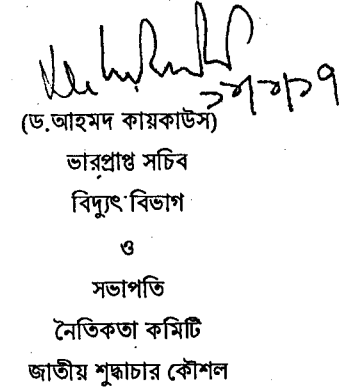 (ড.আহমদ কায়কাউস)
ভারপ্রাপ্ত সচিব
বিদ্যুৎ বিভাগ
ও
সভাপতি
নৈতিকতা কমিটি
জাতীয় শুদ্ধাচার কৌশল